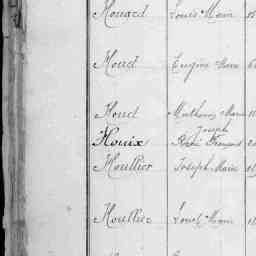 Houard Louis Marie
Houd Eugène Marie
Houd Mathurin Marie
Joseph
Houix René François
Houllier Joseph Marie
Houllier Louis Marie